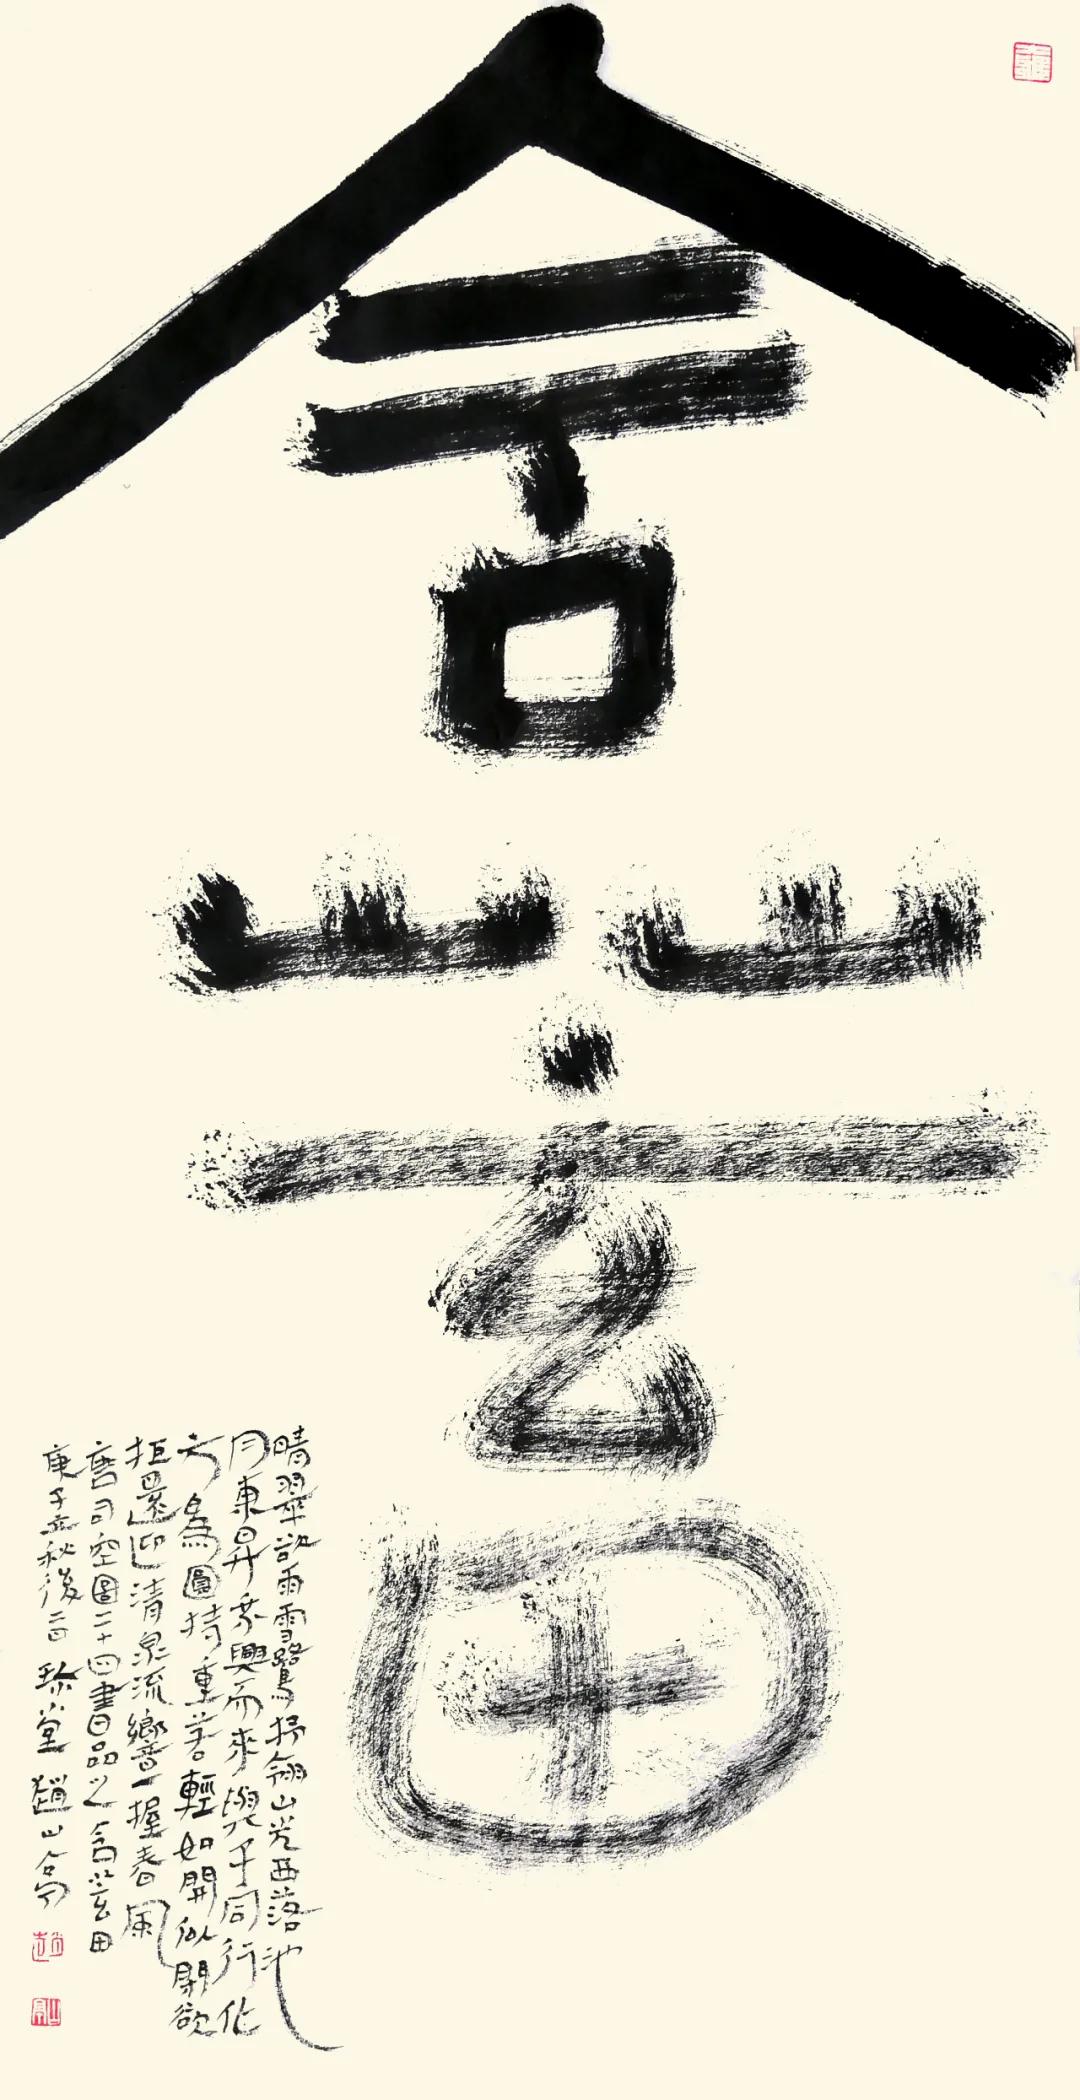 含蓄
晴翠欲雨雪鷺揚翎山光西落池
月東昇乘興而來與子同行化
方為圓持重若輕如開似閉欲
拒還迎清泉流響一握春風
唐司空圖二十四書品之含蓄
庚子立秋後二日珎堂趙山亭